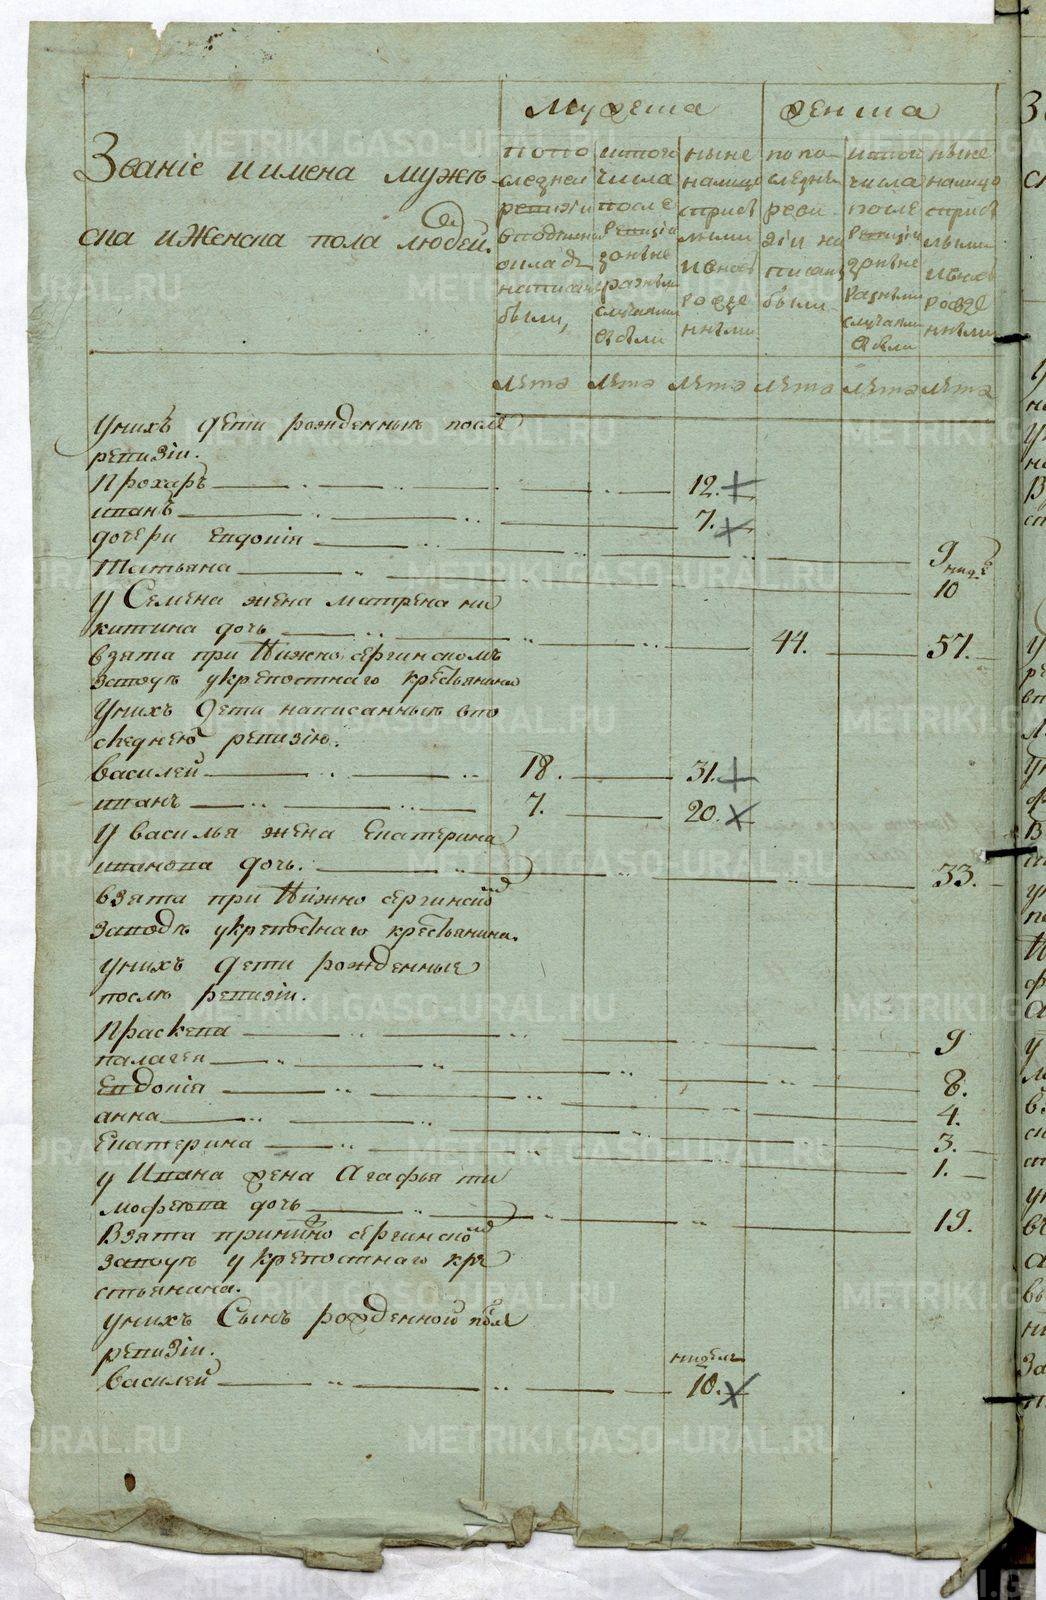 Званіе и имена мужеѣ
ска и Женска пола людей.
Мужеска
женска
попо
следней
ревизіи
вподушном
окладѣ
написаны
были,
истого
числа
после
Ревизіи
разными
случаями
ныне
налицо
сприб
лыми
ивновѣ
рожде
нными
попо
следне
реви
зіи на
писаны
были
истого
числа
после
Ревизіи
разными
случаями
ныне
налицо
сприб
лыми
ивновѣ
рожде
нными
лета лета лета лета лета лета
унихъ дети рожденныя после
ревизіи.
Прохаръ 12.
иванъ 7.
дочери Евдокія 9 недѣ
Татьяна 10
у Семена жена матрена ни
китина дочь 44. 57.
взята при Нижно сергинскомъ
заводѣ укрепостнаго крестьянина
Унихъ Дети написанныя впо
следнею ревизію.
василей 18. 31.
иванъ 7. 20.
у василья жена Екатерина
иванова дочь. 33.
взята при Нижно сергинскомъ
заводѣ укрепостнаго крестьянина.
унихъ дети рожденные
послѣ ревизіи.
Праскева 9
палагея 8.
Евдокія 4.
анна 3.
Екатерина 1.
у Ивана жена Агафья ти
мофеева дочь 19.
Взята принижно сергинскомъ
заводѣ укрепостнаго кре
стьянина.
унихъ Сынъ рожденной после
ревизіи.
недель
василей 10.
METRIKI.GASO-URAL.RU